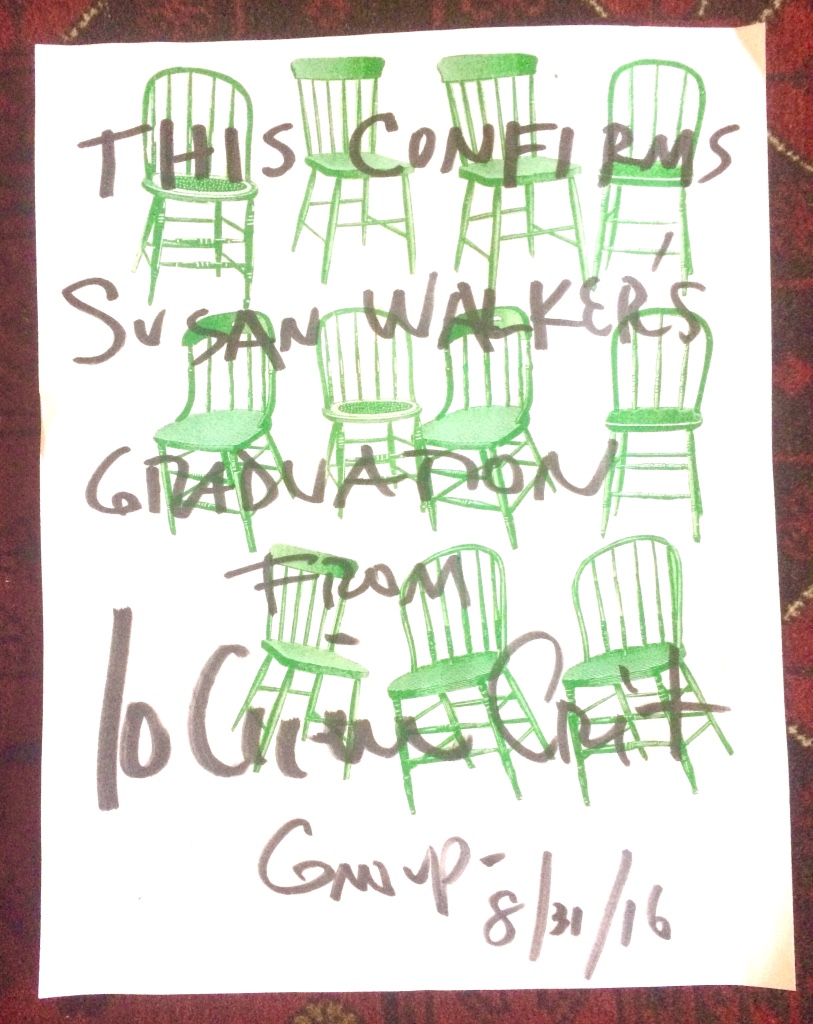 THIS CONFIRMS
SUSAN WALKER'S
GRADUATION
FROM
10 Chair Crit
Group - 8/31/16